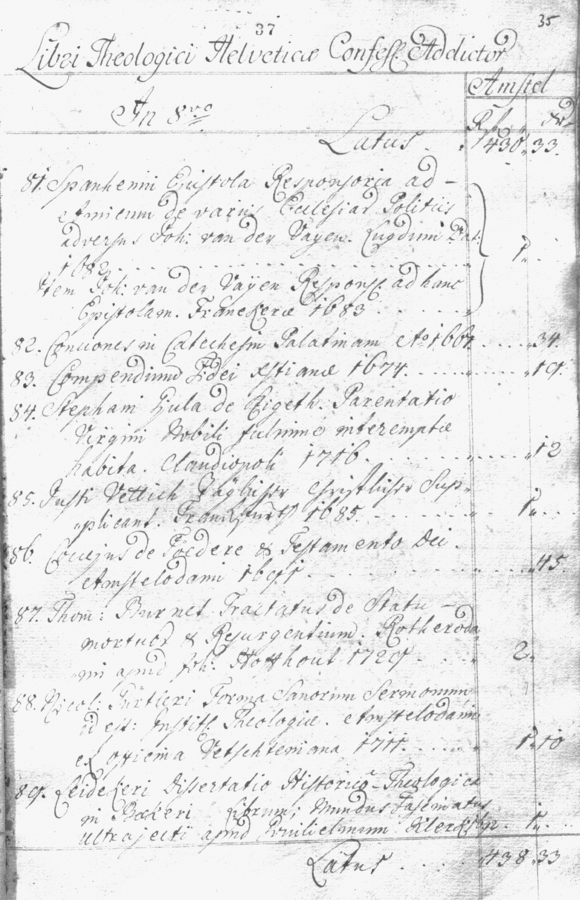 37
35
Libri Theologici Helveticæ Confess. Addictor
Amstel
In 8vo
Rf. Xr
Latus . 430. 33.
81. Spanhemii Epistola Responsoria ad -
Amicum de variis Ecclesiar Politiis
adversus Joh. van der Vayen. Lugduni Bat.
1683. 1.
Item Joh. van der Vayen Respons. ad hanc
Epistolam. Franekeræ 1683.
82. Conciones in Catechesin Palatinam Ao 1664. 34.
83. Compendium Fidei 1674. 19.
84. Stephani Gula de Sigeth. Parentatio
Virgini Nobili fulmine interemptæ
habita. Claudiopoli 1716. 12
85. Justi Vettich Täglicher Christlicher Sup-
plicant. Franckfurth 1685. 1.
86. Coccejus de Foedere & Testamento Dei.
Amstelodami 1691 45.
87. Thom: Burnet Tractatus de Statu -
mortuor & Resurgentium.Ротheroda
mi apud Joh. Hofhout 1729. 2.
88. Nicol: Gürtleri Forma Sanorum Sermonum
id est: Institt Theologiæ. Amstelodami
ex officina Vetschteniana 1711. 1. 10
89. Leidekeri Dissertatio Historico-Theologica
in Bekeri Librum; Mundus Fascinatus
Ultrajecti apud Guilielmum Klerck 1.
Latus 438. 33